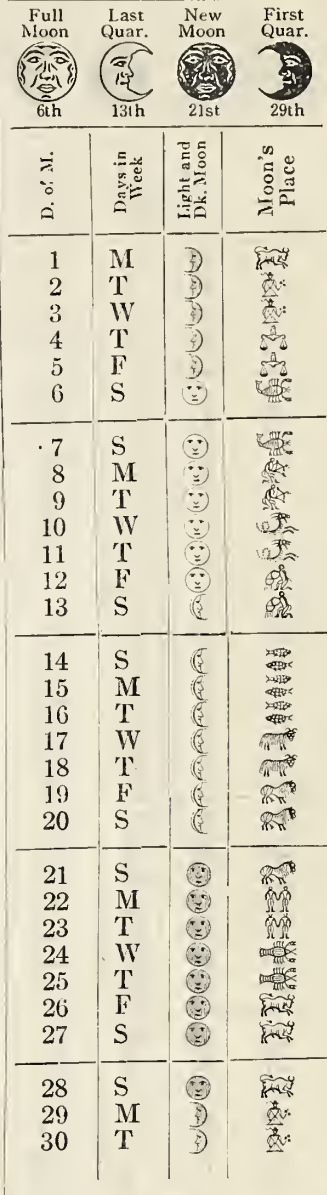 Full Moon Last Quar. New Moon First Quar.
6th 13th 21st 29th
D. of M. Days in Week Light and Dk. Moon Moon's Place
1 M
2 T
3 W
4 T
5 F
6 S
7 S
8 M
9 T
10 W
11 T
12 F
13 S
14 S
15 M
16 T
17 W
18 T
19 F
20 S
21 S
22 M
23 T
24 W
25 T
26 F
27 S
28 S
29 M
30 T